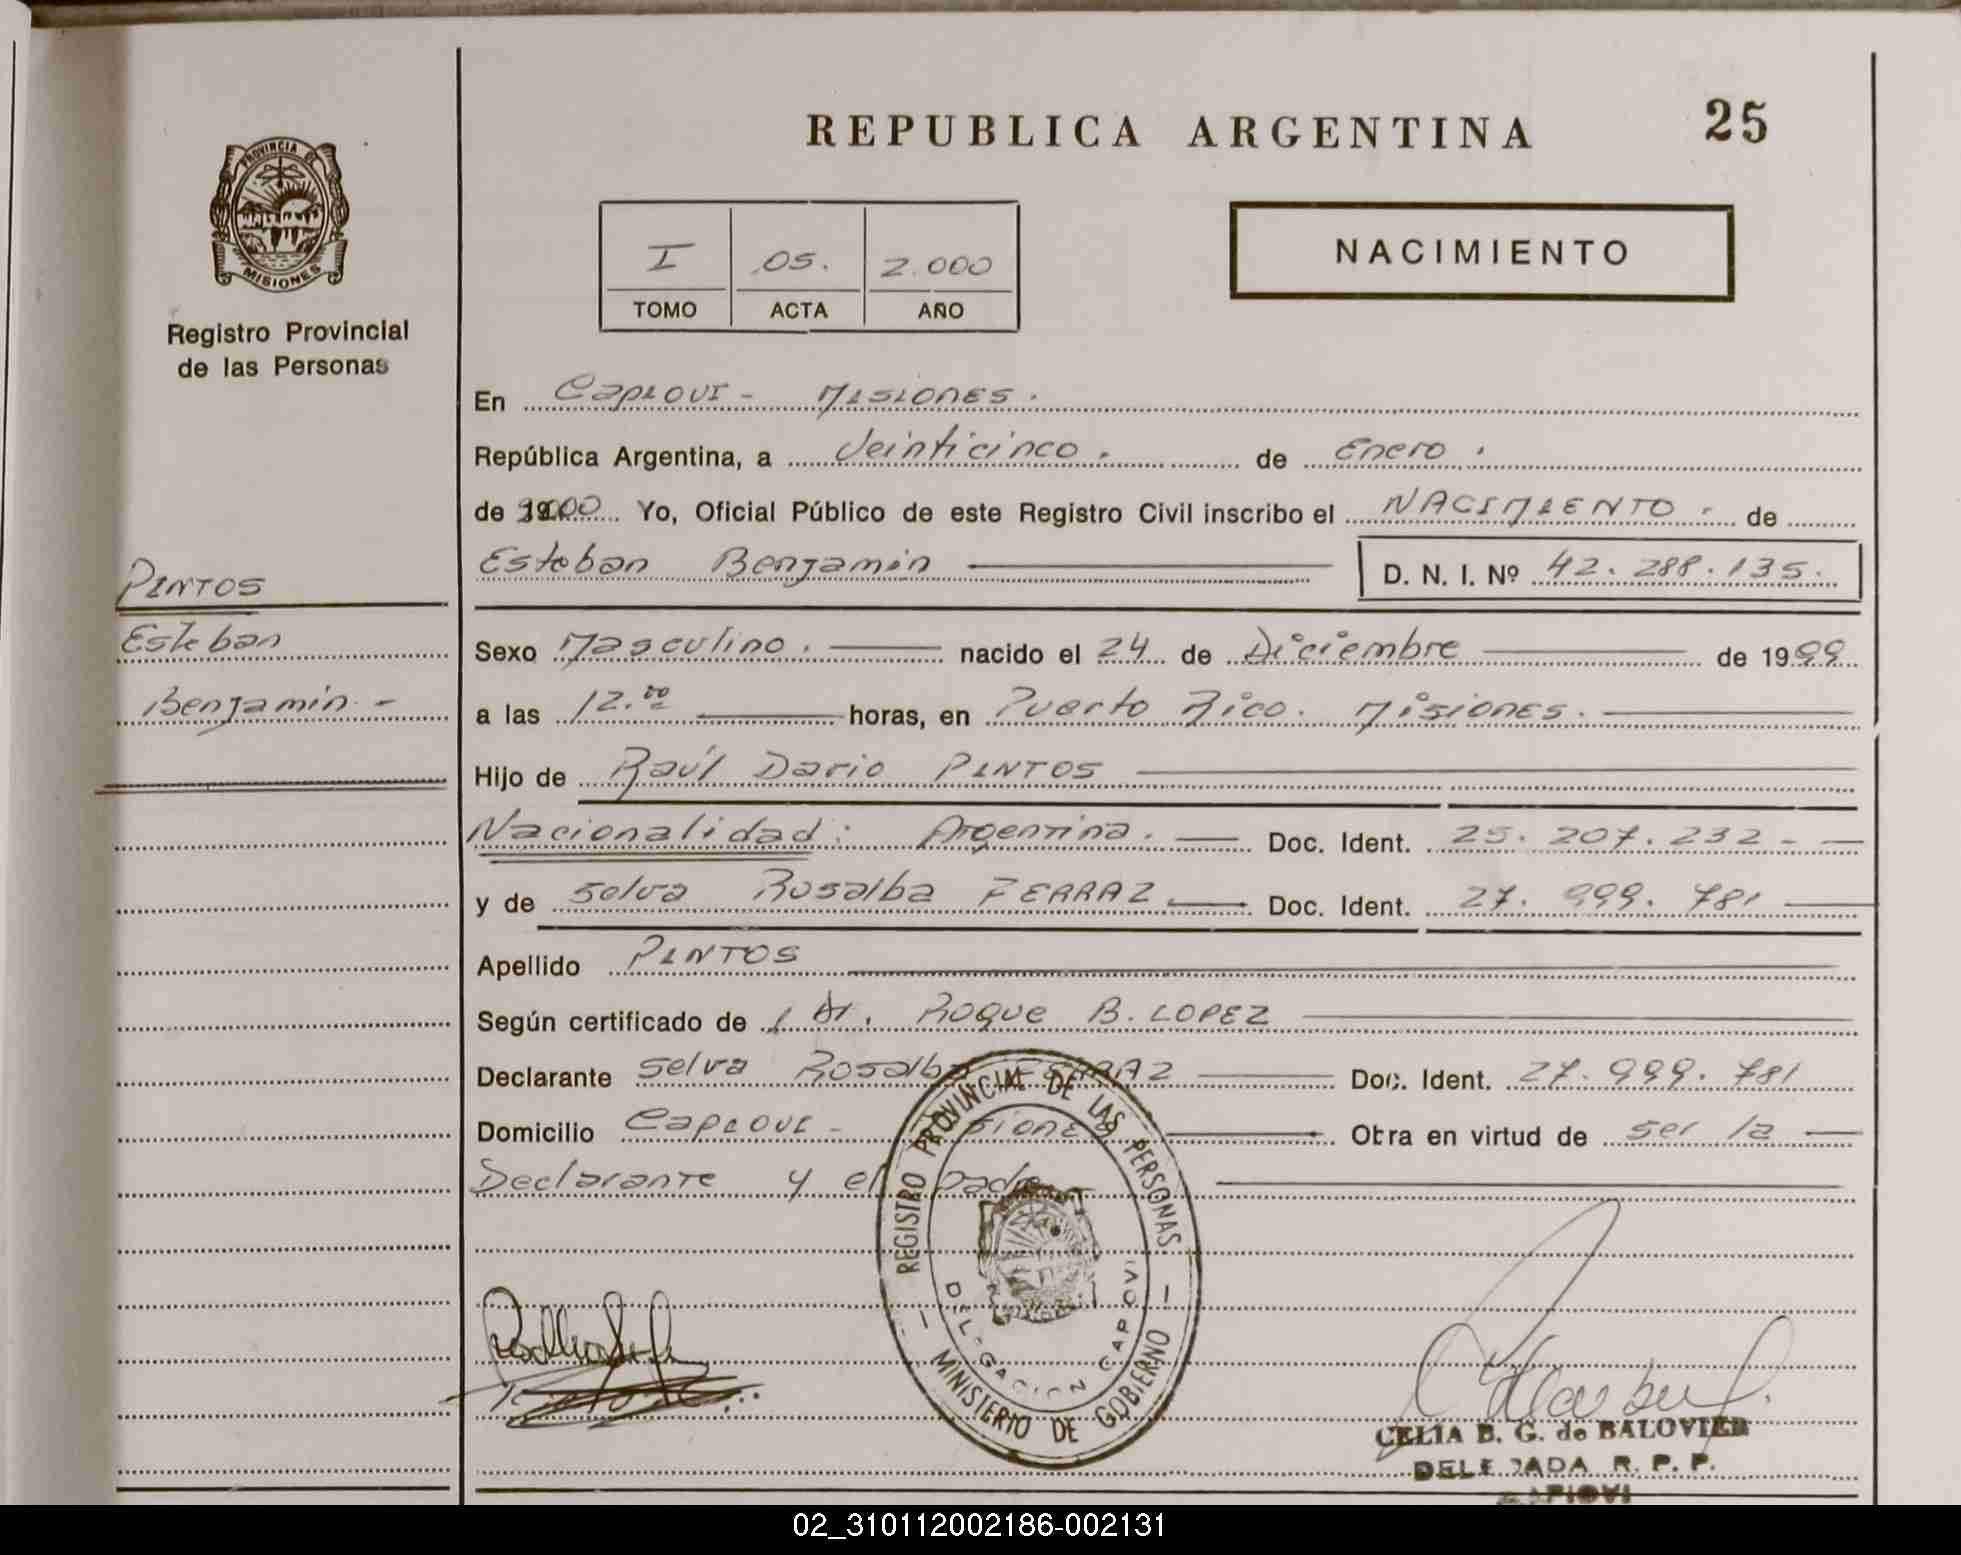 REPUBLICA ARGENTINA
25
PROVINCIA DE
MISIONES
Registro Provincial
de las Personas
I 05. 2.000
TOMO ACTA AÑO
NACIMIENTO
En Capiovi - Misiones.
República Argentina, a Veinticinco. de Enero.
de 2000 Yo, Oficial Público de este Registro Civil inscribo el NACIMIENTO. de
Esteban Benjamin D. N. I. Nº 42.288.135.
PINTOS
Esteban
Benjamin -
Sexo Masculino. nacido el 24 de Diciembre de 1999
a las 12.00 horas, en Puerto Rico. Misiones.
Hijo de Raúl Dario PINTOS
Nacionalidad: Argentina. Doc. Ident. 25.207.232 -
y de Selva Rosalba FERRAZ Doc. Ident. 27.999.781
Apellido PINTOS
Según certificado de Dr. Roque B. LOPEZ
Declarante Selva Rosalba FERRAZ Doc. Ident. 27.999.781
Domicilio Capiovi - Misiones Obra en virtud de ser la
Declarante y el padre
REGISTRO PROVINCIAL DE LAS PERSONAS
DELEGACION CAPIOVI
— MINISTERIO DE GOBIERNO —
CELIA B. G. de BALOVIER
DELEGADA R. P. P.
CAPIOVI
02_310112002186-002131